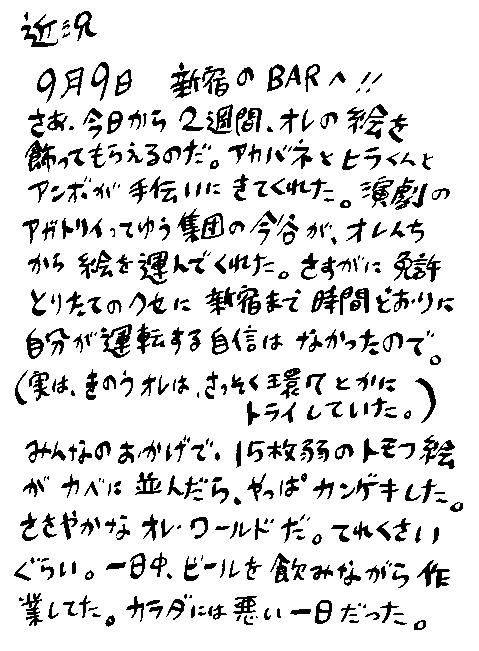 近況
9月9日 新宿のBARへ!!
さあ、今日から2週間、オレの絵を
飾ってもらえるのだ。アカバネとヒラくんと
アンボが手伝いにきてくれた。演劇の
アガトリイってゆう集団の今谷が、オレんち
から絵を運んでくれた。さすがに免許
とりたてのクセに新宿まで時間どおりに
自分が運転する自信はなかったので。
(実は、きのうオレは、さっそく環7とかに
トライしていた。)
みんなのおかげで、15枚弱のトモフ絵
がカベに並んだら、やっぱカンゲキした。
ささやかなオレ・ワールドだ。てれくさい
ぐらい。一日中、ビールを飲みながら作
業してた。カラダには悪い一日だった。